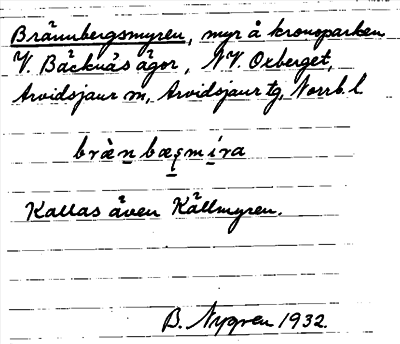 Brännbergsmyren, myr å kronoparken
V. Bäcknäs ägor, NV. Oxberget,
Arvidsjaur sn, Arvidsjaur tg, Norrb. l
bræ̀n bæʂmíra
Kallas även Källmyren.
B. Nygren 1932.